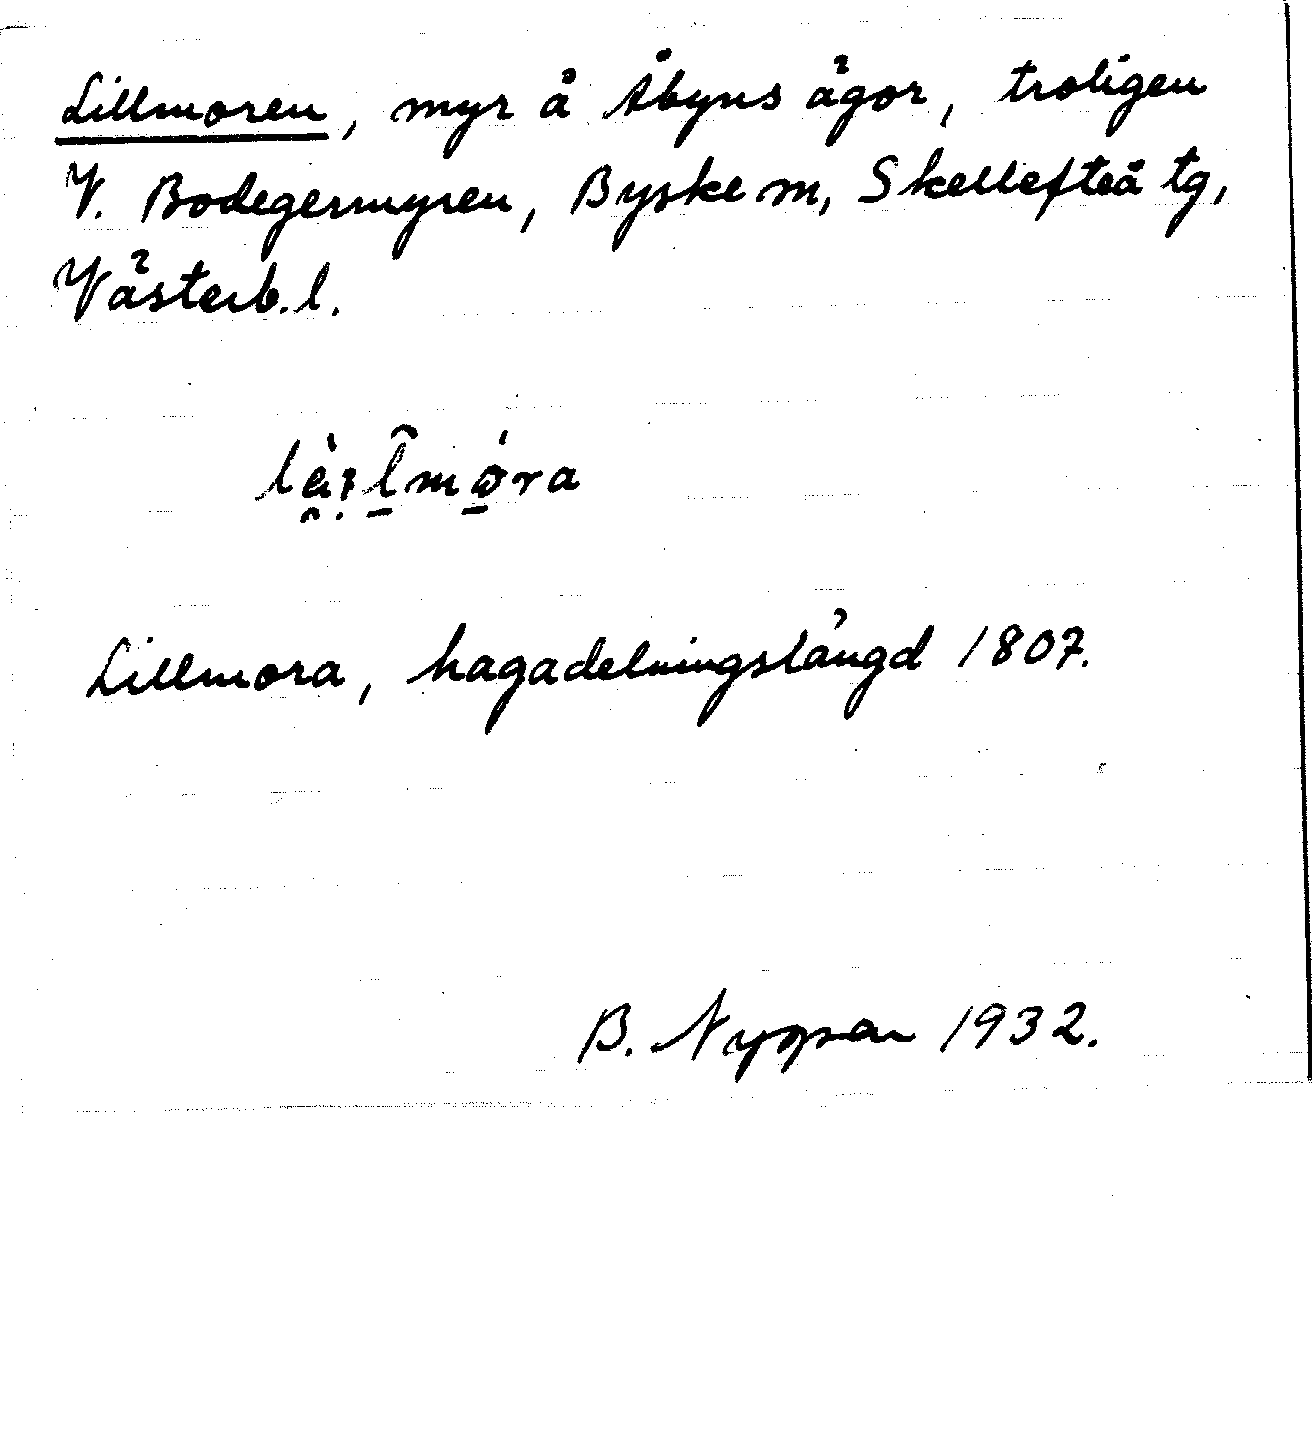 Lillmoren, myr å Åbyns ägor, troligen
V. Bodegermyren, Byske sn, Skellefteå tg,
Västerb. l.
Lillmora, hagadelningslängd 1807.
B. 1932.